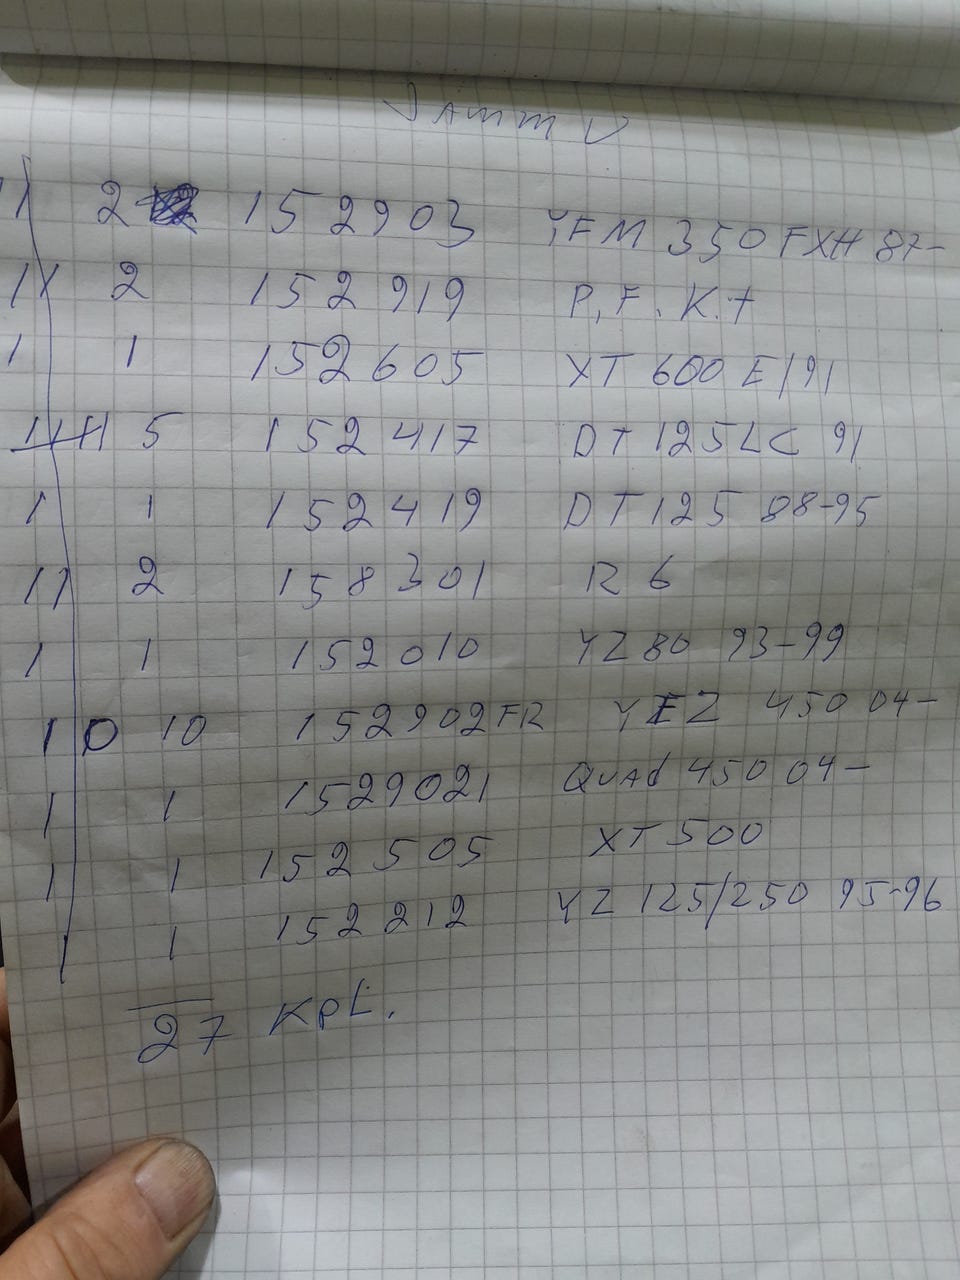 JAMM U
11 2 152903 YFM 350 FXH 87-
11 2 152919 P.F.K.t
1 1 152605 XT 600 E/91
5 152417 DT 125 LC 91
1 1 152419 DT 125 88-95
11 2 158301 R6
1 1 152010 YZ 80 93-99
10 10 152902FR YFZ 450 04-
1 1 1529021 QUAd 450 04-
1 1 152505 XT 500
1 1 152212 YZ 125/250 95-96
27 KpL.